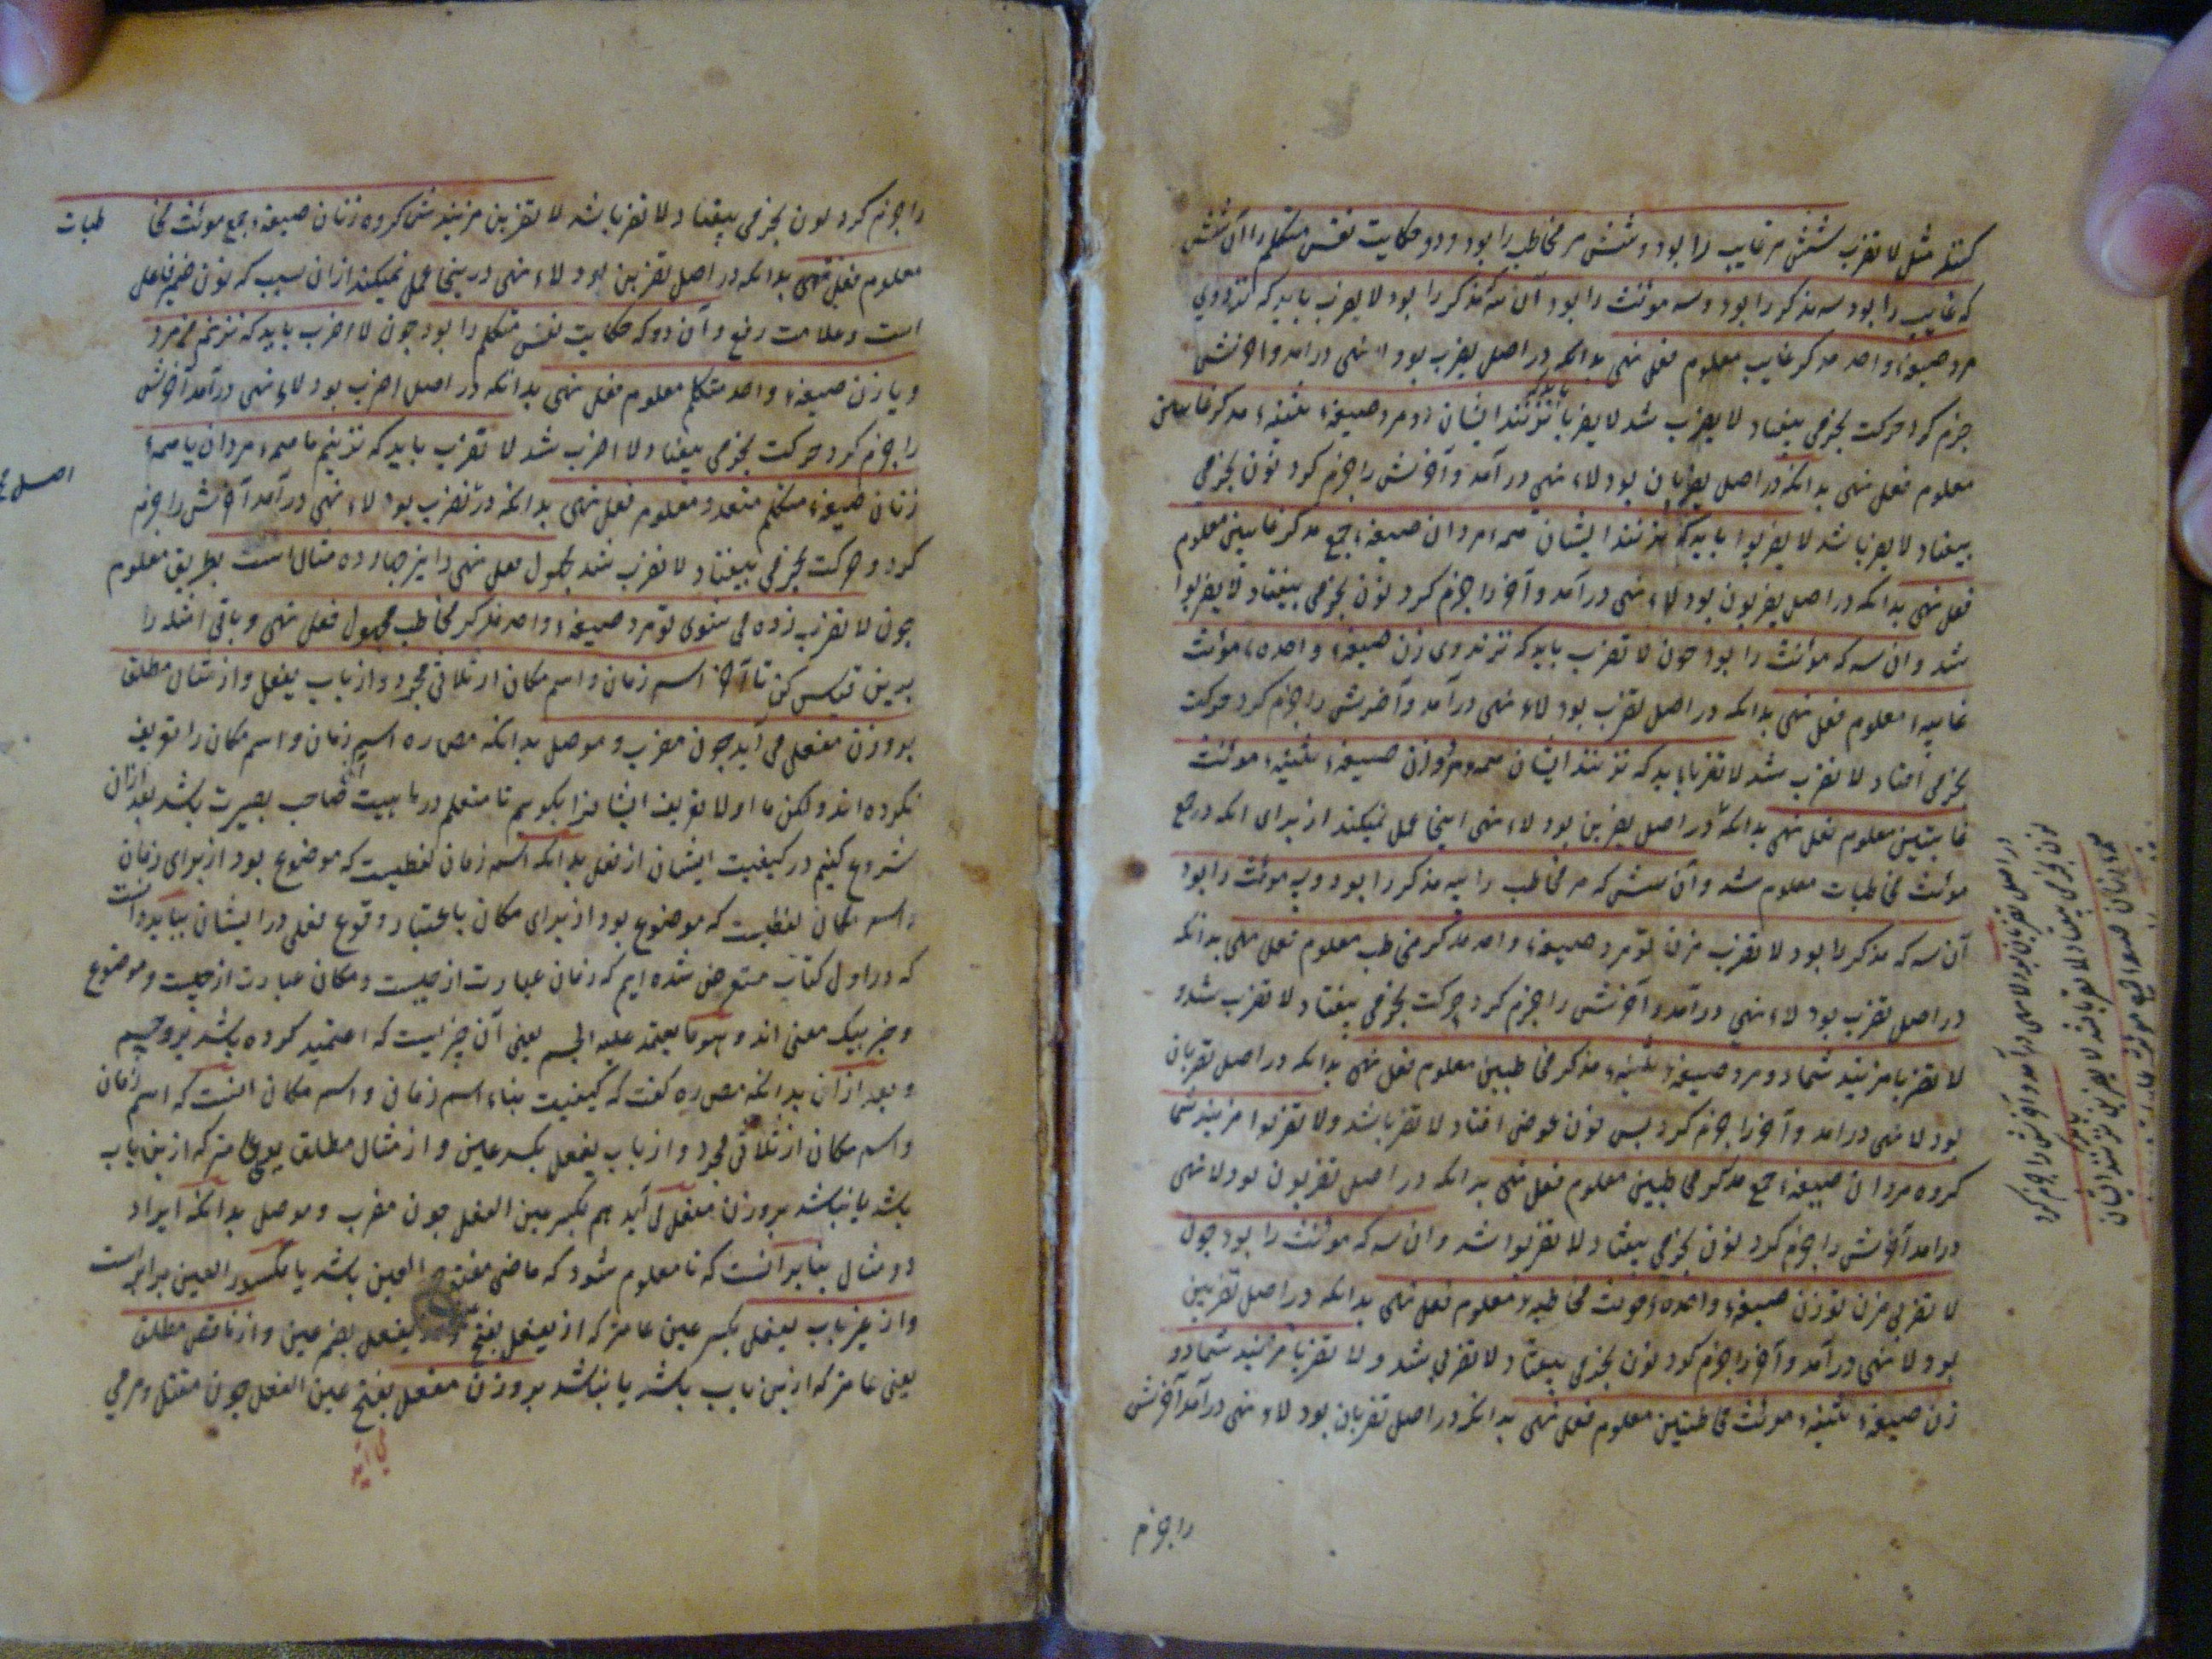 مثل لا تضرب شش مر غایب را بود و شش مر مخاطب را بود و دو حکایت نفس متکلم را آن شش
که غایب را بود سه مذکر را بود و سه موئنث را بود آن سه مذکر را بود لا یضرب باید که نزند وی
مرد صیغهٔ واحد مذکر غایب معلوم فعل نهی بدانکه در اصل یضرب بود لا نهی درامد واخرش
جزم کرد حرکت بجزمی بیفتاد لا یضرب شد لا یضربا باید که نزنند ایشان دو مرد صیغهٔ تثنیهٔ مذکر غایبین
معلوم فعل نهی بدانکه در اصل یضربان بود لاء نهی در آمد و آخرش را جزم کرد نون بجزمی
بیفتاد لا یضربا شد لا یضربوا باید که نزنند ایشان همه مردان صیغهٔ جمع مذکر غایبین معلوم
فعل نهی بدانکه در اصل یضربون بود لاء نهی درآمد و آخر را جزم کرد نون بجزمی بیفتاد لا یضربوا
شد وان سه که موئنث را بود چون لا تضرب باید که نزند وی زن صیغهٔ واحده موئنث
غایبه معلوم فعل نهی بدانکه در اصل تضرب بود لاء نهی درآمد و آخرش را جزم کرد حرکت
بجزمی افتاد لا تضرب شد لا تضربا باید که نزنند ایشان همه دو زن صیغهٔ تثنیهٔ موئنث
غایبتین معلوم فعل نهی بدانکه در اصل یضربن بود لاء نهی اینجا عمل نمیکند از برای انکه در جمع
موئنث مخاطبات معلوم شد و آن شش که مر مخاطب را سه مذکر را بود و سه موئنث را بود
آن سه که مذکر را بود لا تضرب مزن تو مرد صیغهٔ واحد مذکر مخاطب معلوم فعل نهی بدانکه
در اصل تضرب بود لاء نهی درآمد و آخرش را جزم کرد حرکت بجزمی بیفتاد لا تضرب شد و
لا تضربا مزنید شما دو مرد صیغهٔ تثنیهٔ مذکر مخاطبین معلوم فعل نهی بدانکه در اصل تضربان
بود لا نهی درامد و آخر را جزم کرد پس نون عوضی افتاد لا تضربا شد ولا تضربوا مزنید شما
کروه مردان صیغهٔ جمع مذکر مخاطبین معلوم فعل نهی بدانکه در اصل تضربون بود لا نهی
درامد آخرش را جزم کرد نون بجزمی بیفتاد لا تضربوا شد وان سه که موئنث را بود چون
لا تضربی مزن تو زن صیغهٔ واحدهٔ مونث مخاطبه معلوم فعل نهی بدانکه در اصل تضربین
بود لا نهی درآمد و آخر را جزم کرد نون بجزمی بیفتاد لا تضربی شد و لا تضربا مزنید شما دو
زن صیغهٔ تثنیهٔ موئنث مخاطبتین معلوم فعل نهی بدانکه در اصل تضربان بود لاء نهی درآمد آخرش
را جزم
را جزم کرد نون بجزمی بیفتاد لا تضربا شد لا تضربن مزنید شما کروه زنان صیغهٔ جمع موئنث مخا
طبات
معلوم فعل نهی بدانکه در اصل تضربن بود لاء نهی در ینجا عمل نمیکند از ان سبب که نون ضمیر فاعل
است و علامت رفع و آن دو که حکایت نفس متکلم را بود چون لا اضرب باید که نزنم من مرد
و یا زن صیغهٔ واحد متکلم معلوم فعل نهی بدانکه در اصل اضرب بود لاء نهی درآمد آخرش
را جزم کرد حرکت بجزمی بیفتاد لا اضرب شد لا نضرب باید که نزنیم ما همه مردان یا همه
زنان صیغهٔ متکلم متعدد معلوم فعل نهی بدانکه در نضرب بود لاء نهی درآمد آخرش را جزم
اصل
کرد و حرکت بجزمی بیفتاد لا نضرب شد مجهول فعل نهی را نیز چهارده مثال است بطریق معلوم
چون لا تضرب زده می شوی تو مرد صیغهٔ واحد مذکر مخاطب مجهول فعل نهی و باقی امثله را
برین قیاس کن تا آخر اسم زمان و اسم مکان از ثلاثی مجرد و از باب یفعل و از مثال مطلق
بر وزن مفعل می آید چون مضرب و موصل بدانکه مص ره اسم زمان و اسم مکان را تعریف
نکرده اند ولکن ما اولا تعریف ایشانرا بکوییم تا متعلم در ماهیت صاحب بصیرت باشد بعد ازان
شروع کنیم در کیفیت ایشان از فعل بدانکه اسم زمان لفظیست که موضوع بود از برای زمان
واسم مکان لفظیست که موضوع بود از برای مکان باعتبار وقوع فعل در ایشان بباید دانست
که در اول کتاب متعرض شده ایم که زمان عبارت از چیست و مکان عبارت از چیست و موضوع
وخبر بیک معنی اند و هو ما یعتمد علیه الجسم یعنی آن چیزیست که اعتمید کرده باشد برو جسم
و بعد از آن بدانکه مص ره کفت که کیفیت بناء اسم زمان و اسم مکان انست که اسم زمان
واسم مکان از ثلاثی مجرد و از باب یفعل بکسر عین و از مثال مطلق یعنی عامتر که ازین باب
باشد یا نباشد بر وزن مفعل می آید هم بکسر عین الفعل چون مضرب و موصل بدانکه ایراد
دو مثال بنابر آنست که تا معلوم شود که ماضی مفتوح العین باشد یا مکسور العین برابرست
واز غیر باب یفعل بکسر عین عامتر که از یفعل بفتح عین و یفعل بضم عین و از ناقص مطلق
یعنی عامتر که ازین باب باشد یا نباشد بر وزن مفعل بفتح عین الفعل چون مقتل و مرمی
می آید